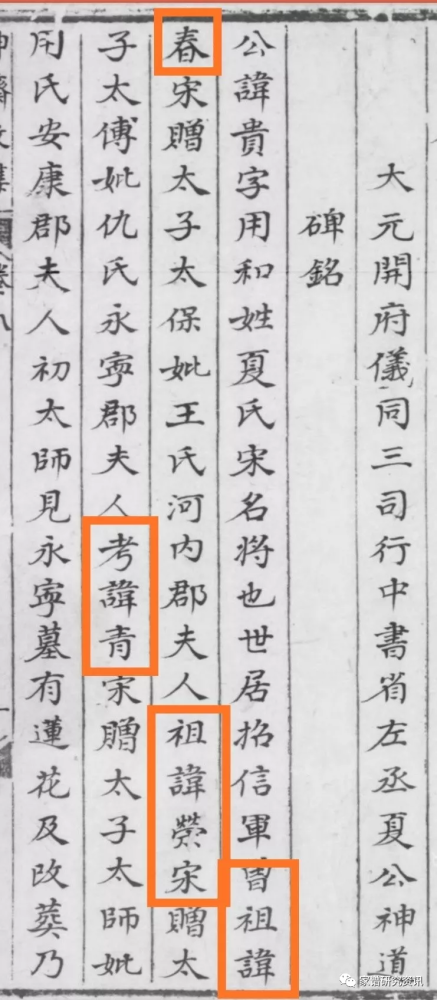 大元開府儀同三司行中書省左丞夏公神道
碑銘
公諱貴字用和姓夏氏宋名將也世居招信軍曾祖諱
春宋贈太子太保妣王氏河内郡夫人祖諱榮宋贈太
子太傅妣仇氏永寧郡夫人考諱青宋贈太子太師妣
周氏安康郡夫人初太師見永寧墓有蓮花及改葬乃
申齋文集
卷八
家谱研究资讯